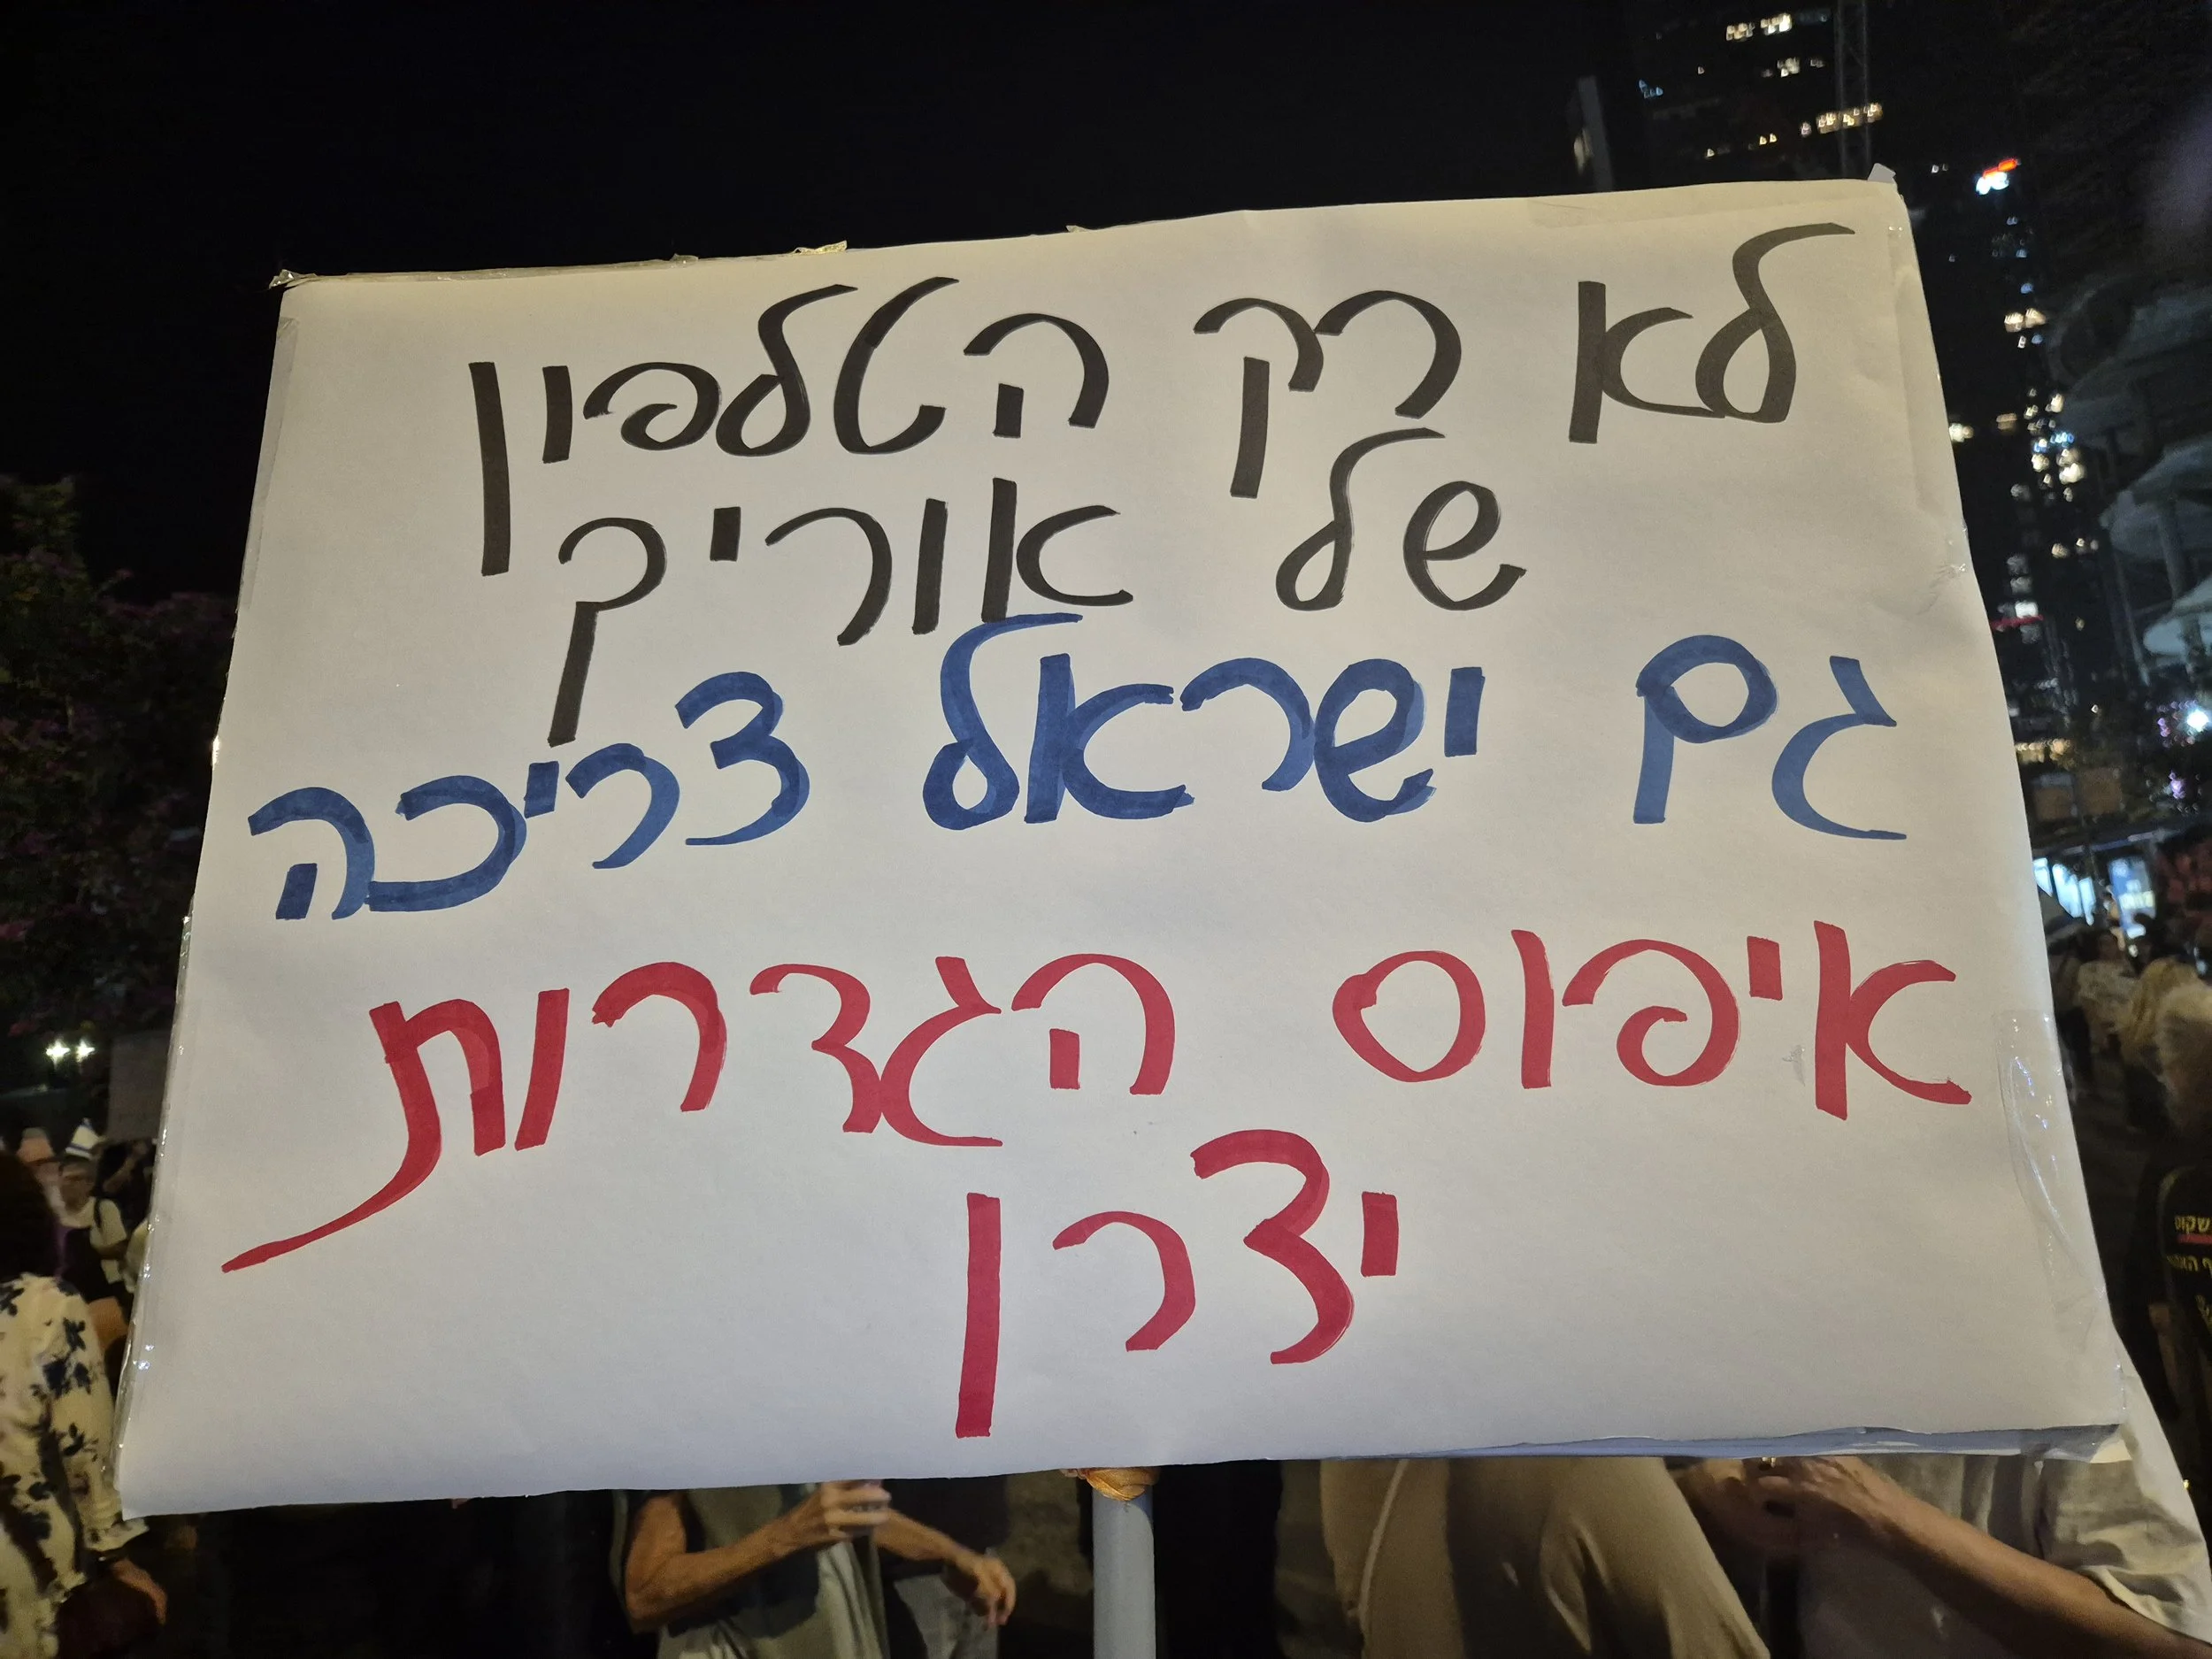 לא רק הטלפון
של אוריך
גם ישראל צריכה
איפוס הגדרות
יצרן